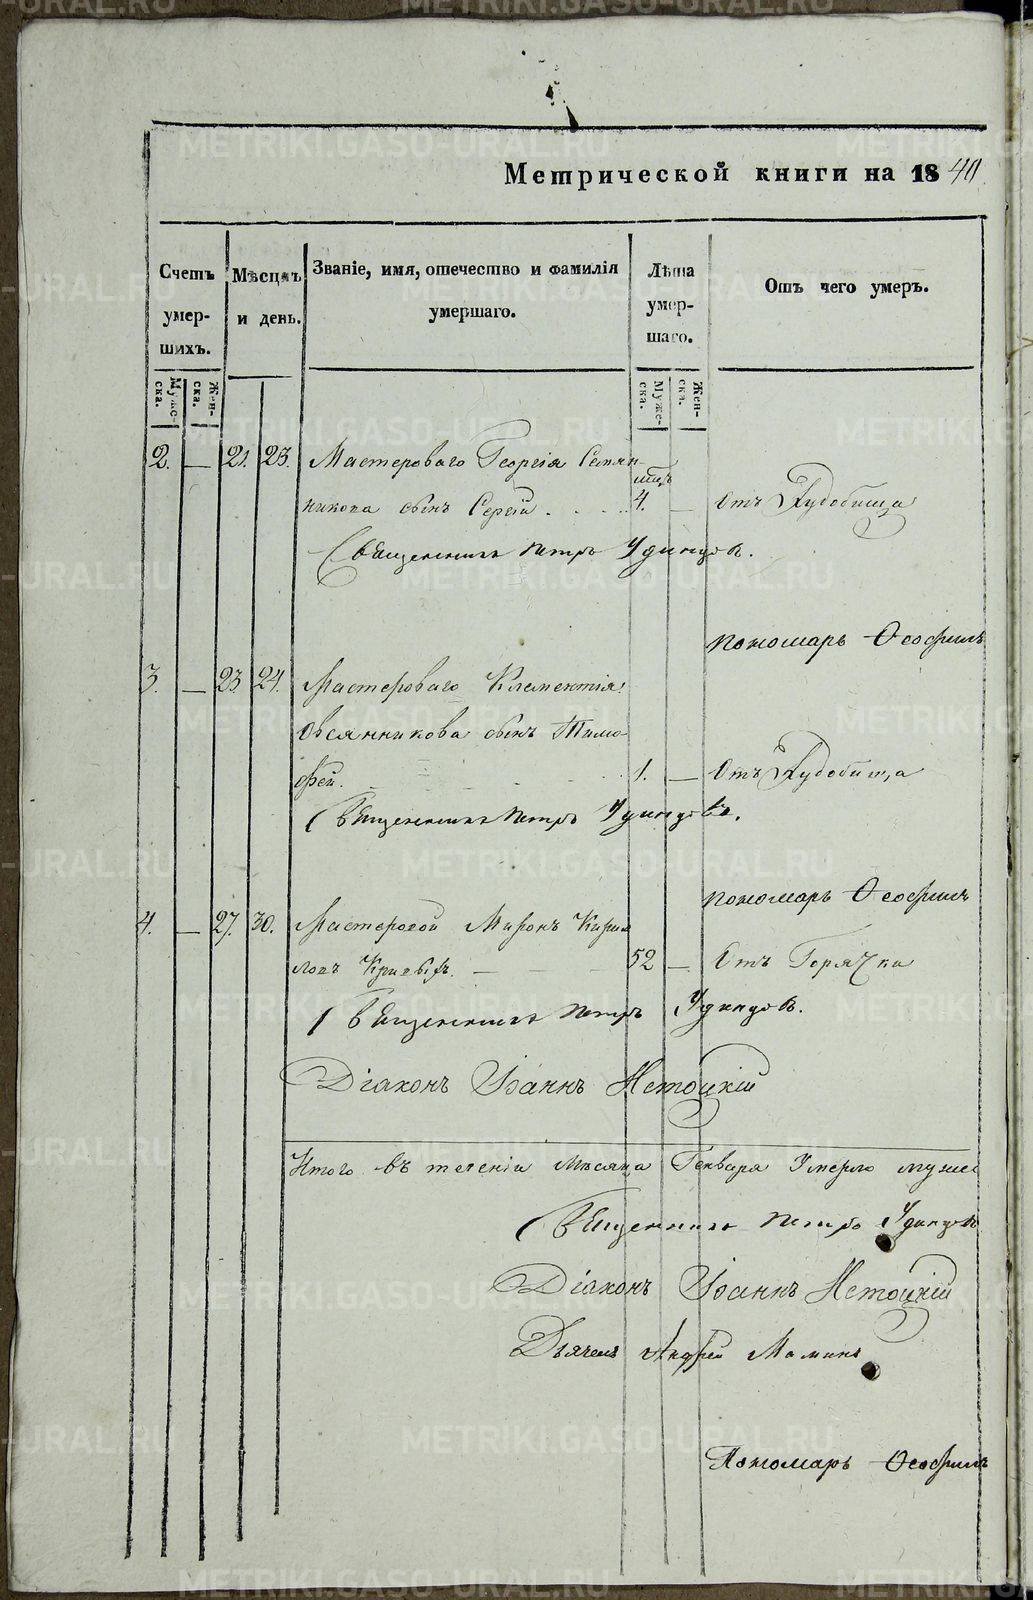 Метрической книги на 1840
Счетъ умер- шихъ.
Мѣсяцъ и день.
Званіе, имя, отечество и фамилія умершаго.
Лѣта умер- шаго.
Отъ чего умеръ.
Муже- ска.
Жен- ска.
Муже- ска.
Жен- ска.
2. — 21. 23. Мастероваго Георгія Семян-
никова сынъ Сергій. 4. — Отъ Худобища
Священникъ Петръ Удинцовъ.
пономарь Ѳеофилъ
3. — 23 24. Мастероваго Клементія
Овсянникова сынъ Тимо-
фей. 1. — Отъ Худобища
Священникъ Петръ Удинцовъ.
пономарь Ѳеофилъ
4. — 27. 30. Мастеровой Миронъ Кирил
ловъ 52 — Отъ Горячки
Священникъ Петръ Удинцовъ.
Діаконъ Іоаннъ Нетоцкій
Итого въ теченіи Мѣсяца Генваря Умерло муже
Священникъ Петръ Удинцовъ
Діаконъ Іоаннъ Нетоцкій
Дьячекъ Андрей Маминъ
Пономарь Ѳеофилъ
METRIKI.GASO-URAL.RU